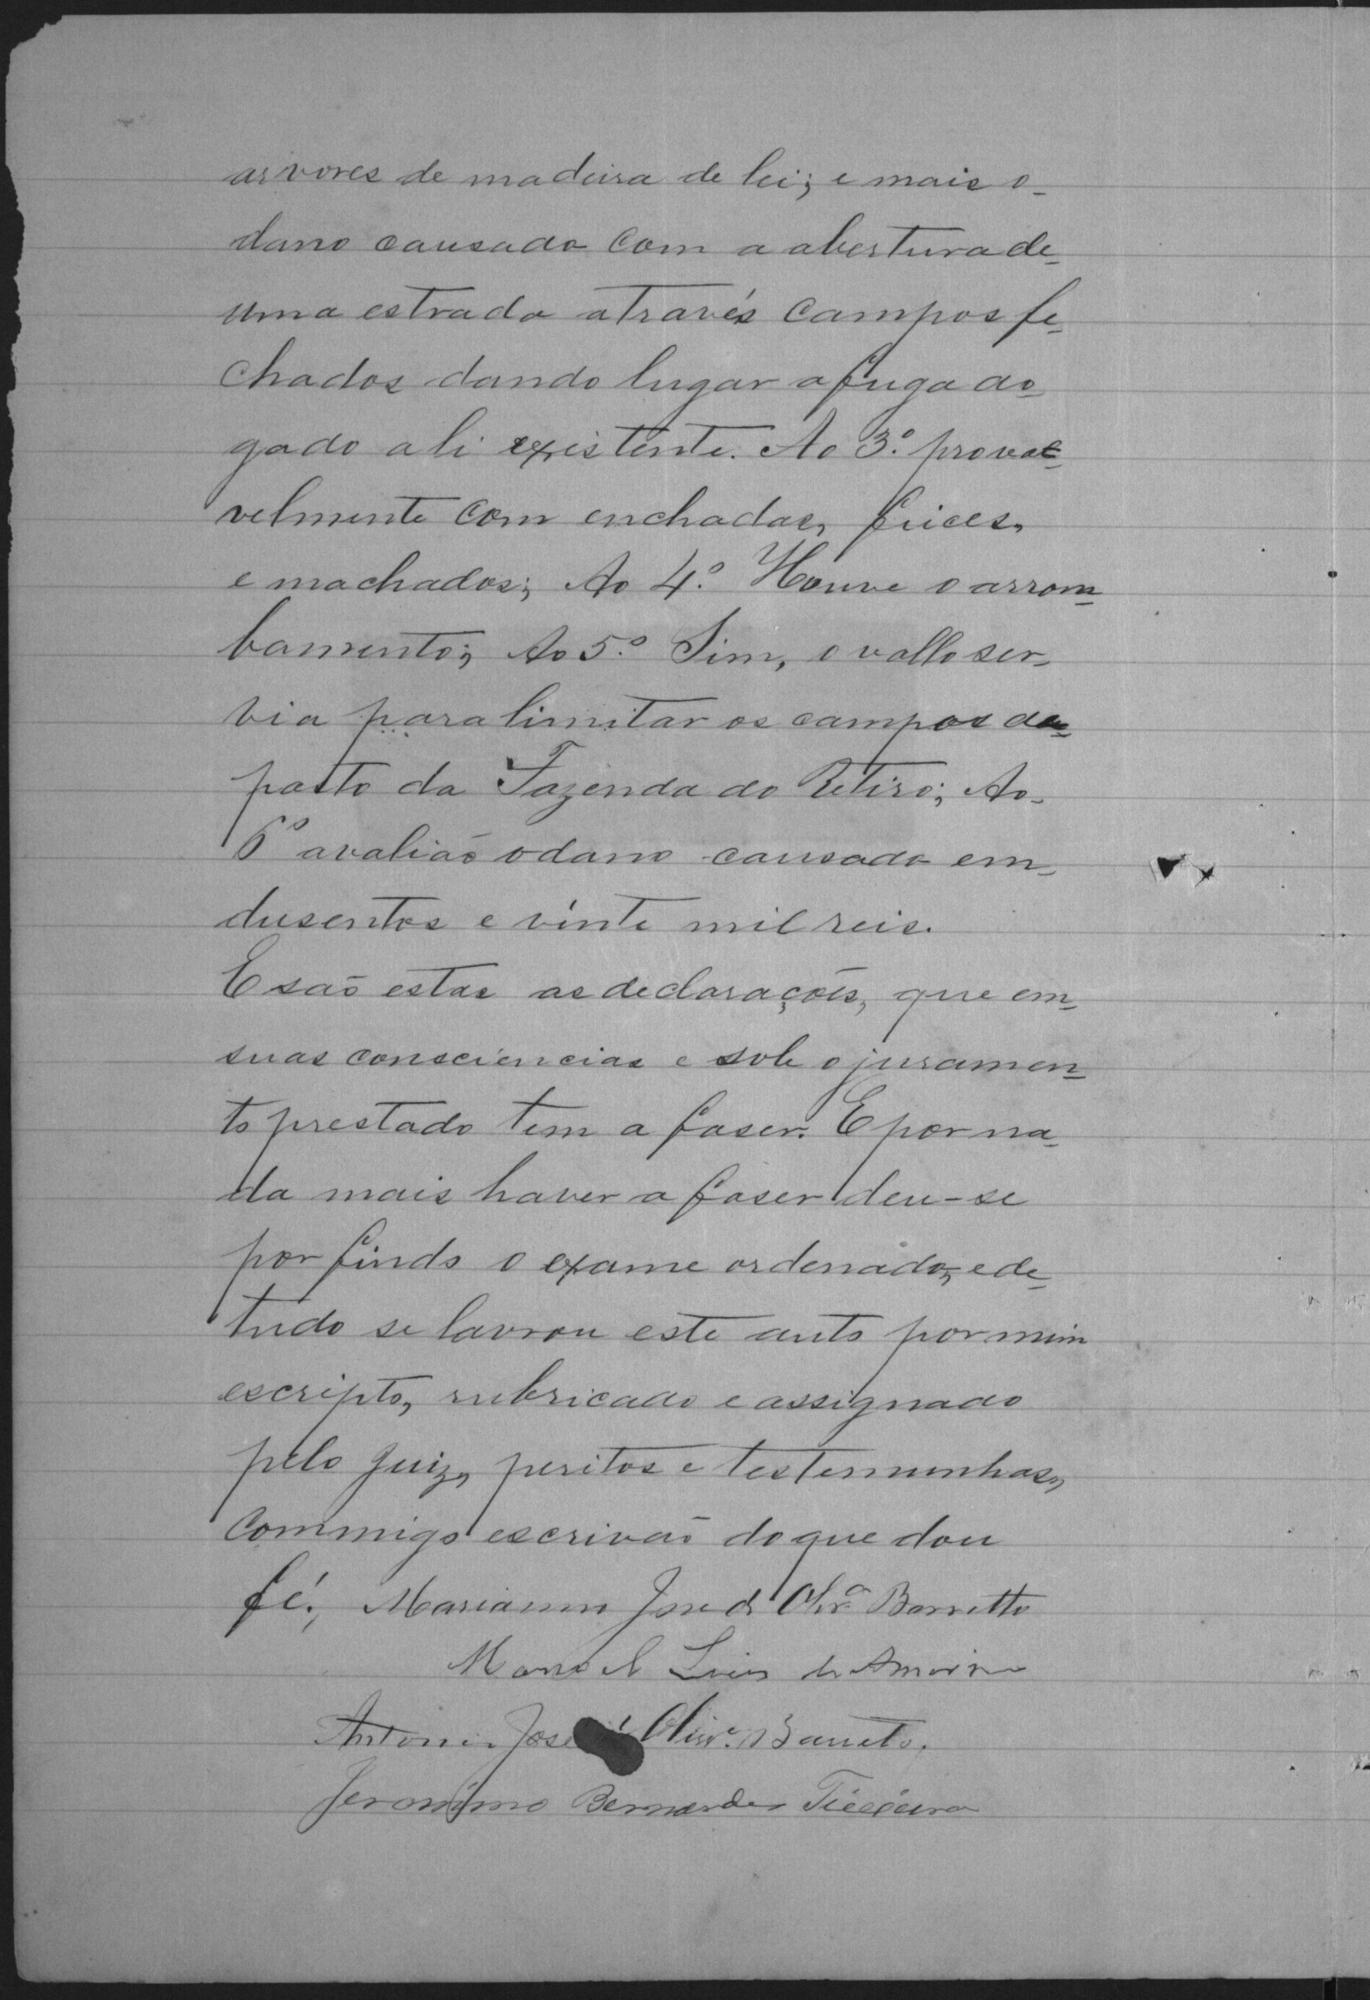 arvores de madeira de lei; e mais o-
dano causado com a abertura de-
uma estrada através campos fe-
chados dando lugar a fuga do-
gado ali existente. Ao 3.º provae-
velmente com enchadas, foices,
e machados; Ao 4.º Houve o arrom-
bamento; Ao 5.º Sim, o vallo ser-
via para limitar os campos de-
pasto da Fazenda do Retiro; Ao-
6º avalião o dano causado em-
dusentos e vinte mil reis.
E são estas as declarações, que em-
suas consciencias e sob o juramen-
to prestado tem a faser. E por na-
da mais haver a faser deu-se
por findo o exame ordenado, e de-
tudo se lavrou este auto por mim
escripto, rubricado e assignado
pelo Juiz, peritos e testemunhas,
commigo escrivão do que dou
fé. Marianno José de Olivrª Barretto
Manoel Luis de Amorim
Antonio José Olivrª Barreto.
Jeronimo Bernardes Teixeira